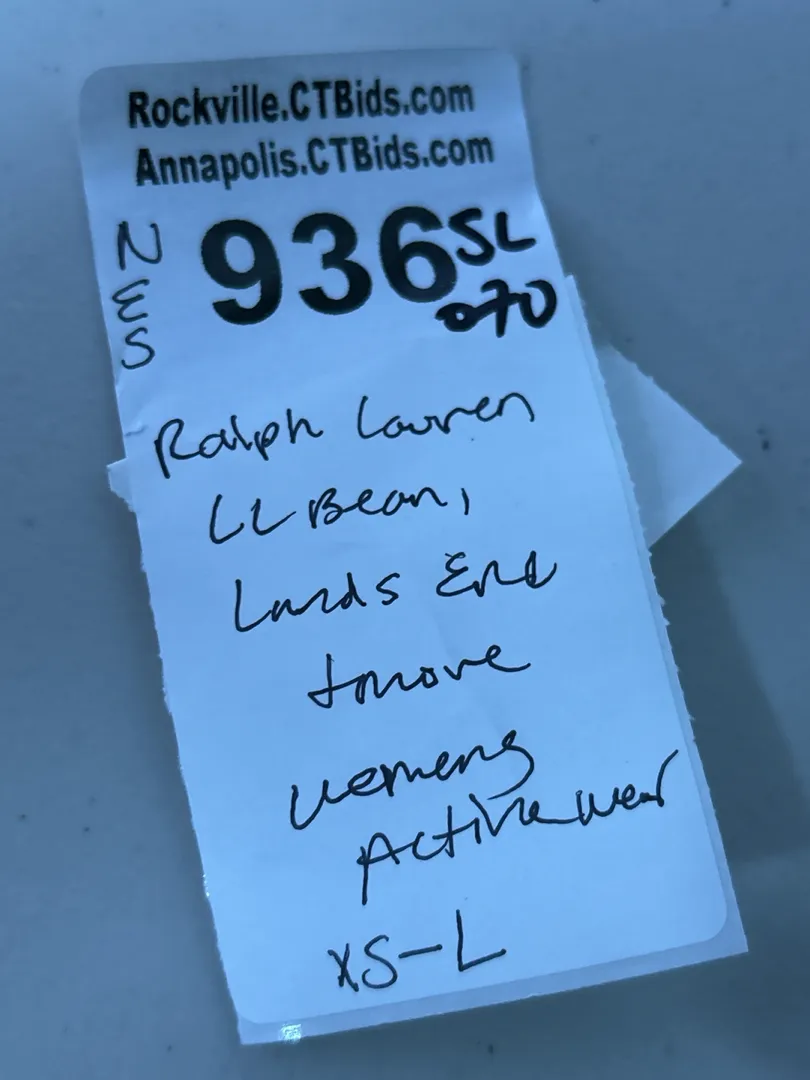 Rockville.CTBids.com
Annapolis.CTBids.com
NES
936 SL
070
Ralph Lauren
LL Bean,
Lands End
+more
Womens
Activewear
XS-L